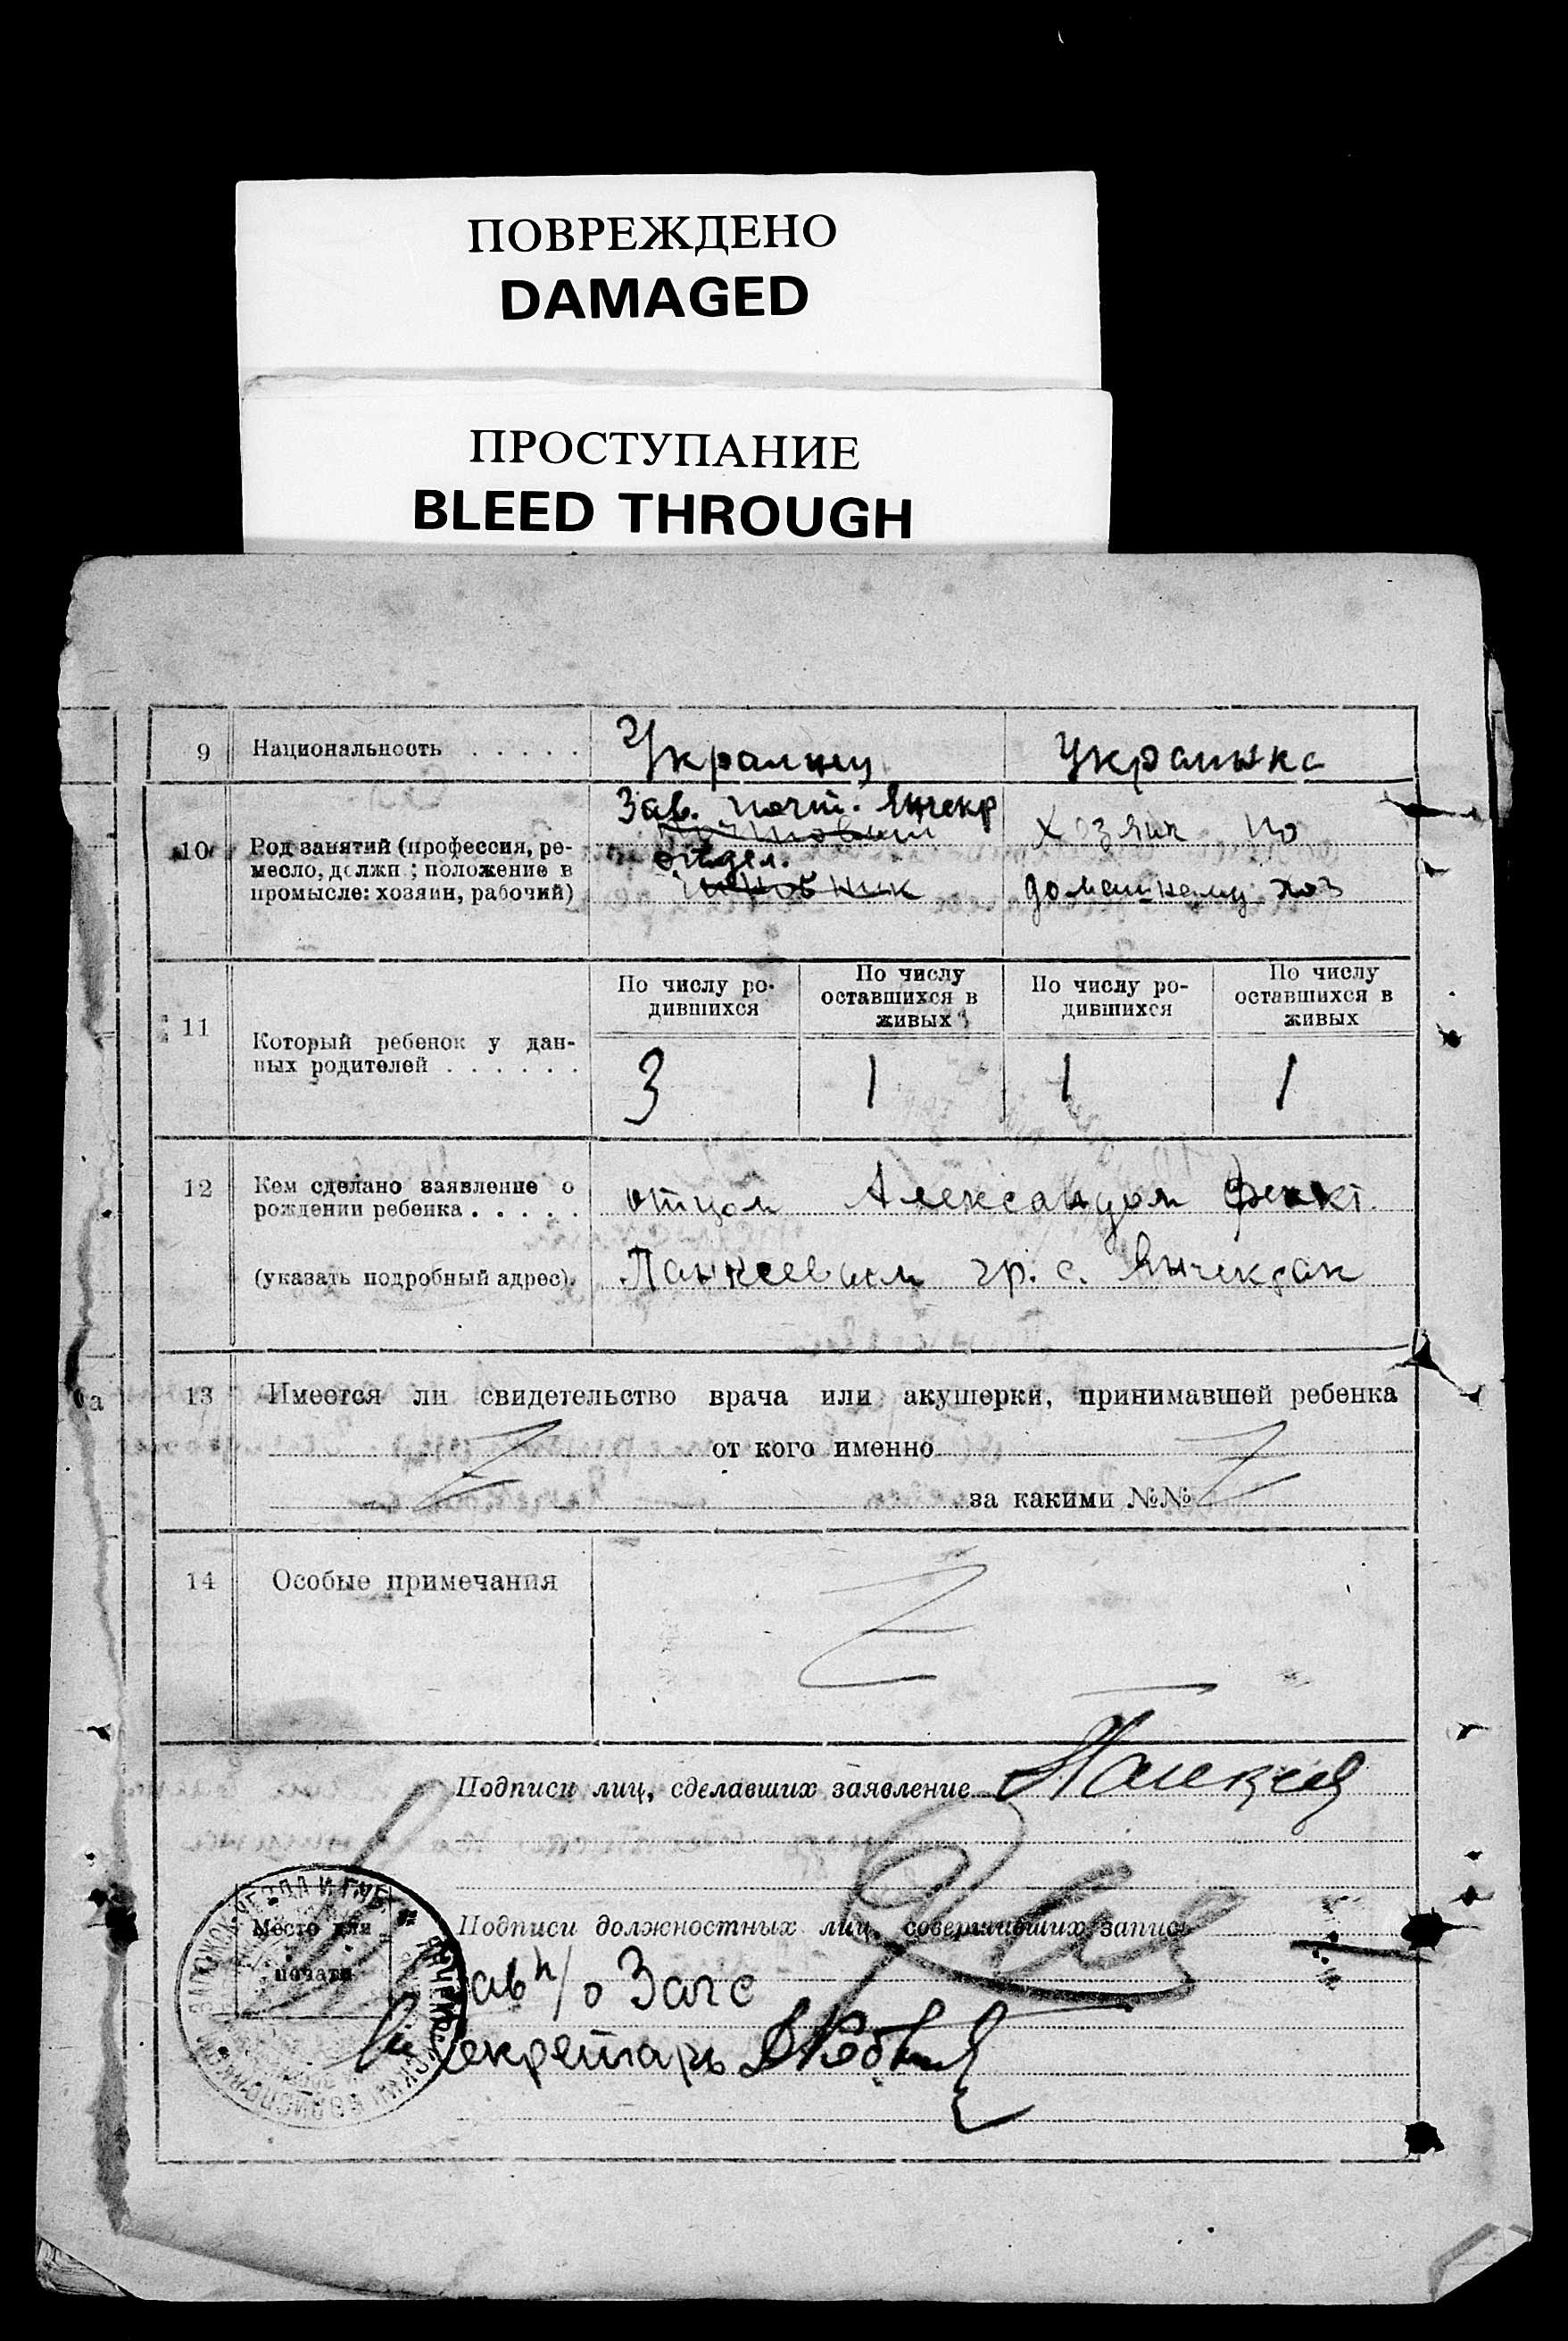 ПОВРЕЖДЕНО
DAMAGED
ПРОСТУПАНИЕ
BLEED THROUGH
9 Национальность . . . . . Украинец Украинка
Зав. почт. Янчекр
10 Род занятий (профессия, ре- почтовый Хозяик по
месло, должн.; положение в отдел.
промысле: хозяин, рабочий) чиновник домашнему хоз
11 Который ребенок у дан-
ных родителей . . . . . .
По числу ро-
дившихся
По числу
оставшихся в
живых
По числу ро-
дившихся
По числу
оставшихся в
живых
3 1 1 1
12 Кем сделано заявление о
рождении ребенка . . . . . отцом Александром
(указать подробный адрес). Панкеевым гр. с. Янчекрак
13 Имеется ли свидетельство врача или акушерки, принимавшей ребенка
Z от кого именно Z
за какими №№
14 Особые примечания Z
Подписи лиц, сделавших заявление Панкеев
Подписи должностных лиц, совершивших запись
Место для
печати
Зав п/о Загс
Секретарь